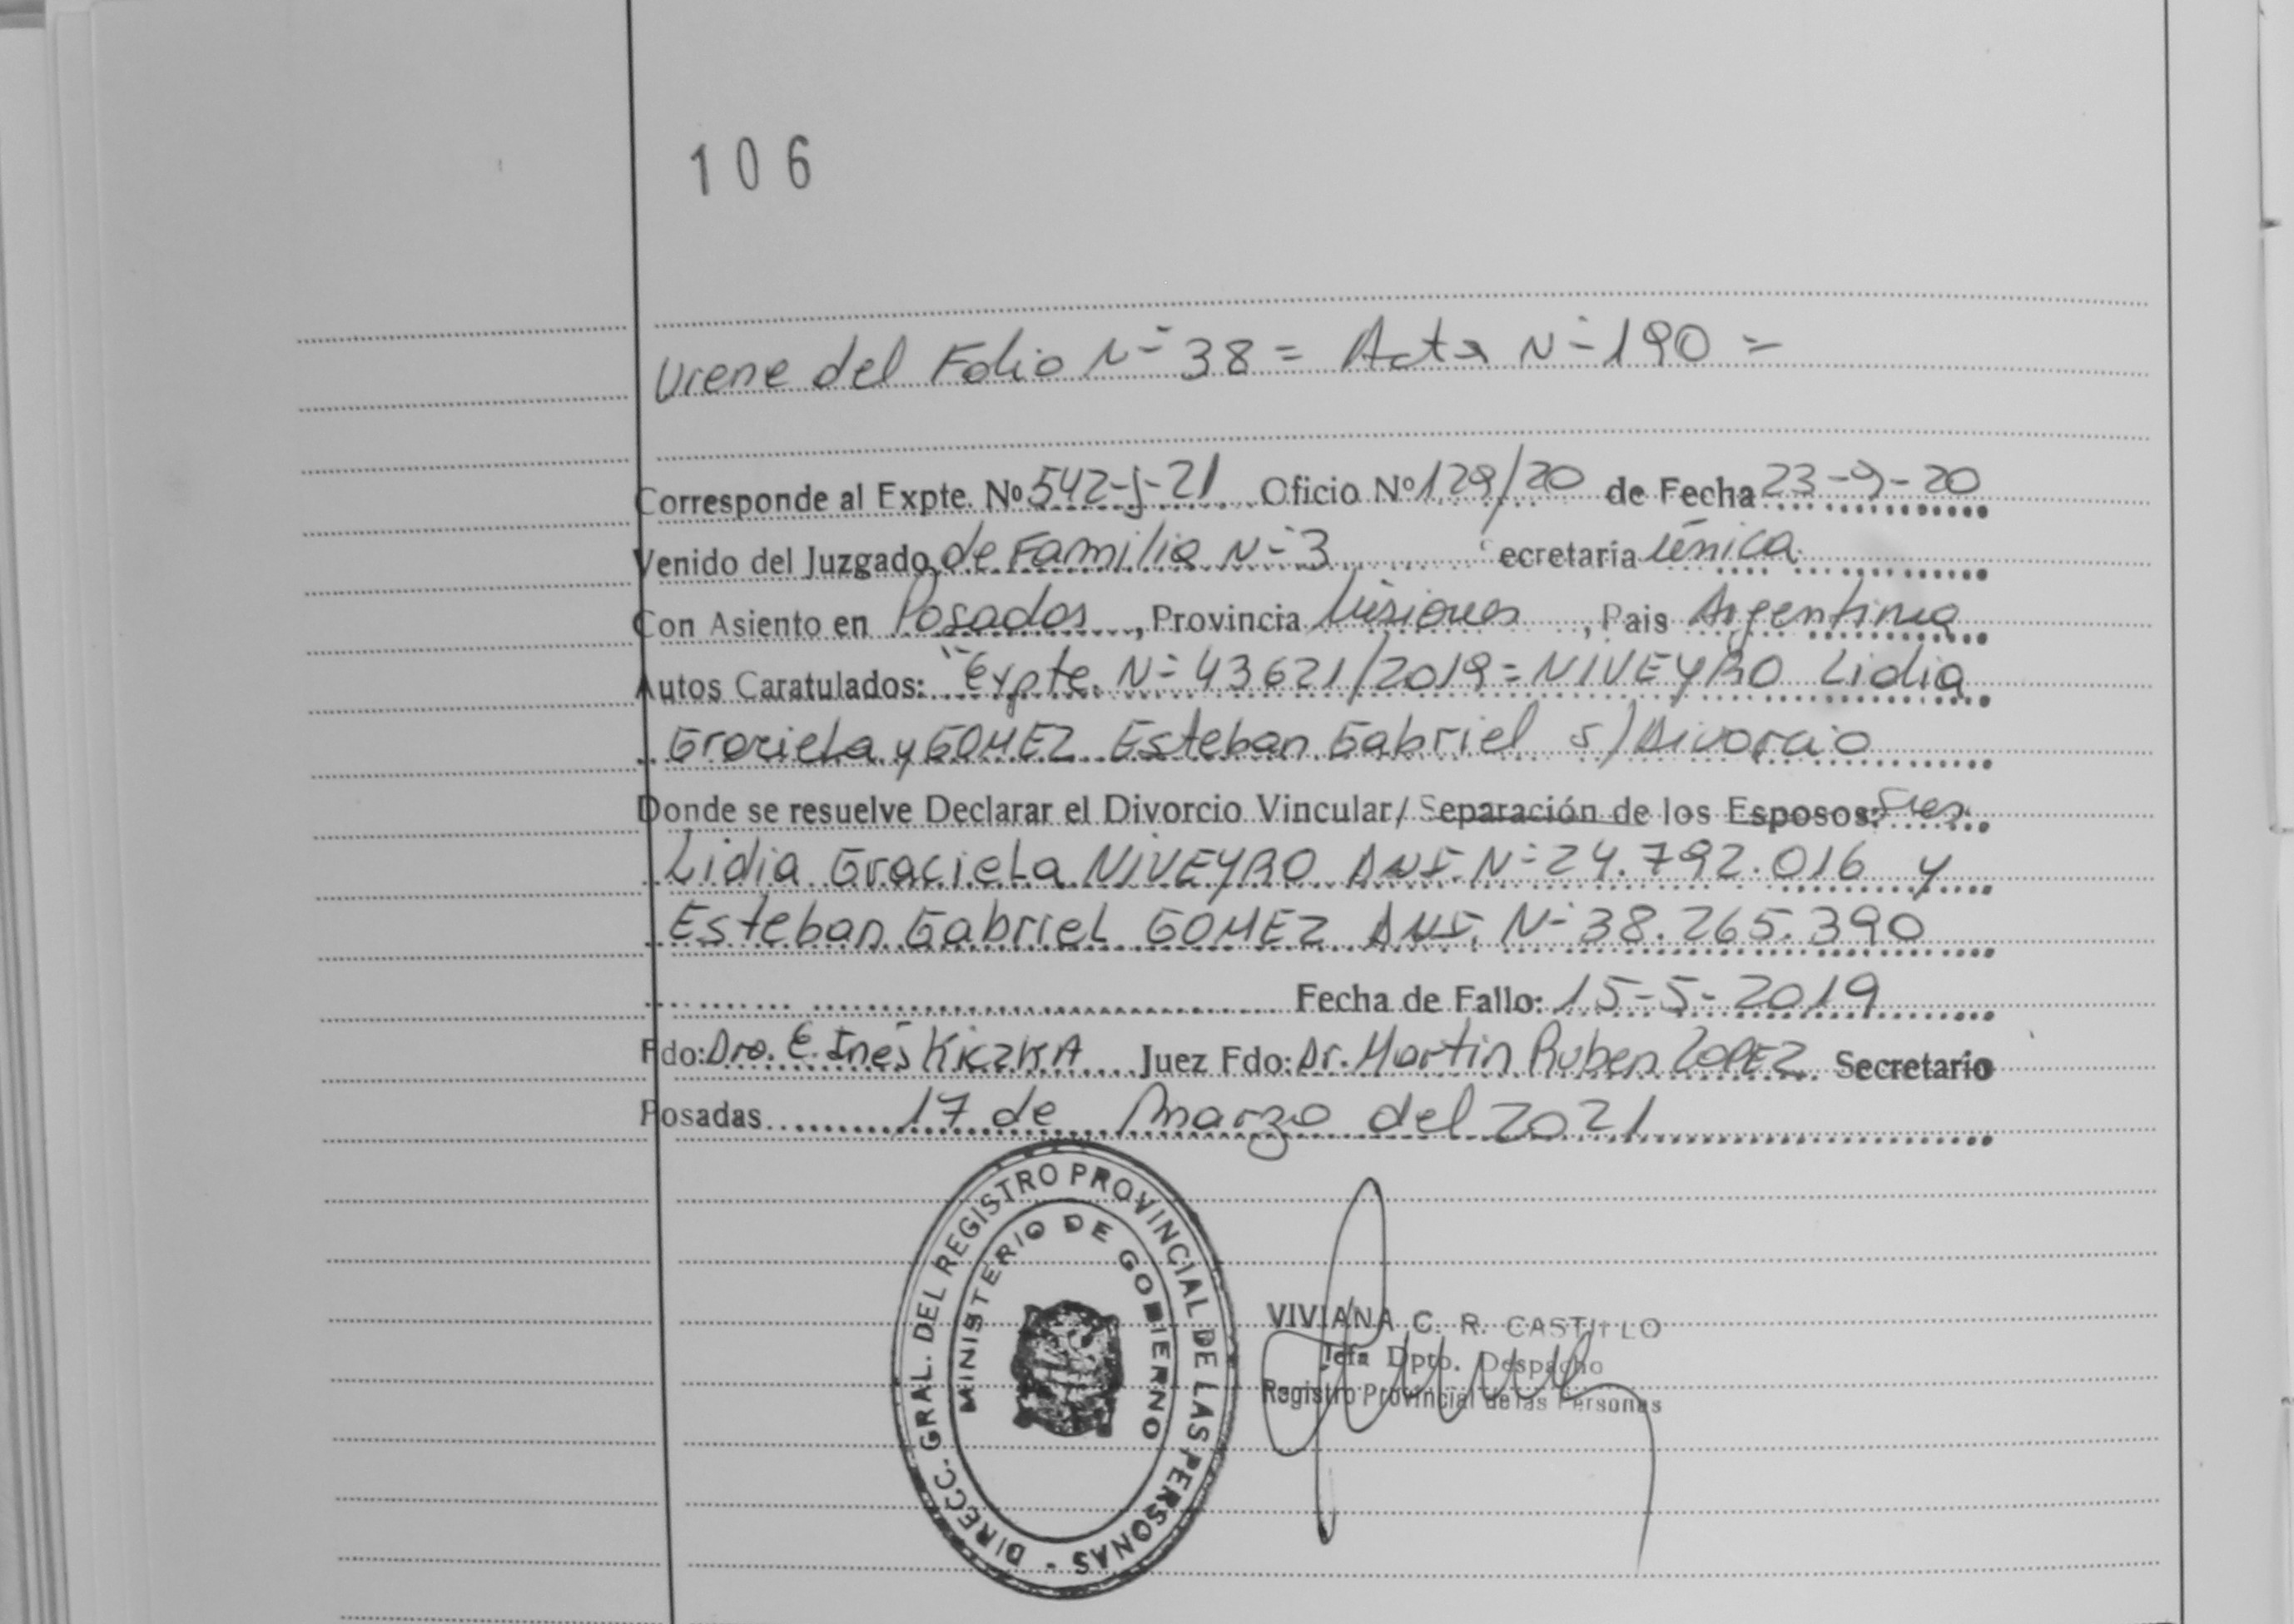 106
Viene del Folio N= 38 = Acta N= 190 =
Corresponde al Expte. Nº 542-J-21 Oficio Nº 129/20 de Fecha 23-9-20
Venido del Juzgado de Familia N= 3 Secretaría única
Con Asiento en Posadas, Provincia Misiones, Pais Argentina
Autos Caratulados: "Expte. N= 43621/2019 = NIVEYRO Lidia
Graciela y GOMEZ Esteban Gabriel s/Divorcio
Donde se resuelve Declarar el Divorcio Vincular/ Separación de los Esposos: Sres.
Lidia Graciela NIVEYRO DNI. N= 24.792.016 y
Esteban Gabriel GOMEZ DNI. N= 38.265.390
Fecha de Fallo: 15-5-2019
Fdo: Dra. E. Inés KICZKA Juez Fdo: Dr. Martin Ruben LOPEZ Secretario
Posadas 17 de marzo del 2021
DIRECC. GRAL. DEL REGISTRO PROVINCIAL DE LAS PERSONAS -
MINISTERIO DE GOBIERNO
VIVIANA C. R. CASTILLO
Jefa Dpto. Despacho
Registro Provincial de las Personas